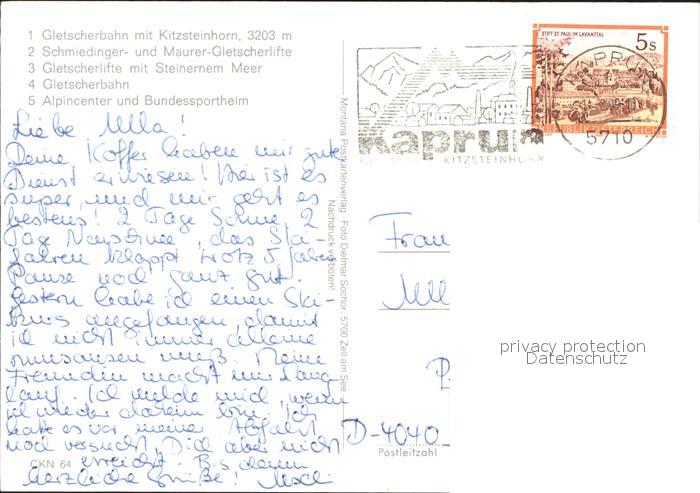 1 Gletscherbahn mit Kitzsteinhorn, 3203 m
2 Schmiedinger- und Maurer-Gletscherlifte
3 Gletscherlifte mit Steinernem Meer
4 Gletscherbahn
5 Alpincenter und Bundessportheim
Liebe Ulla!
Deine Koffer haben mir gute
Dienst erwiesen! Hier ist es
super, und mir geht es
bestens! 2 Tage Sonne, 2
Tage Neuschnee, das Ski-
fahren klappt trotz 5 Jahre
Pause noch ganz gut.
Gestern habe ich einen Ski-
kurs angefangen, damit
ich nicht immer alleine
rumsausen muß. Meine
Freundin macht nur Lang-
lauf. Ich melde mich, wenn
ich wieder daheim bin. Ich
hatte es vor meiner Abfahrt
noch versucht, Dich aber nicht
erreicht. Bis dann
herzliche Grüße!
CKN 64
Montana Postkartenverlag Foto Dietmar Sochor, 5700 Zell am See
Nachdruck verboten!
Kaprun
KITZSTEINHORN
STIFT ST. PAUL IM LAVANTTAL
5 S
REPUBLIK ÖSTERREICH
KAPRUN
5710
Frau
Ull
P.
D-4040
Postleitzahl
privacy protection
Datenschutz